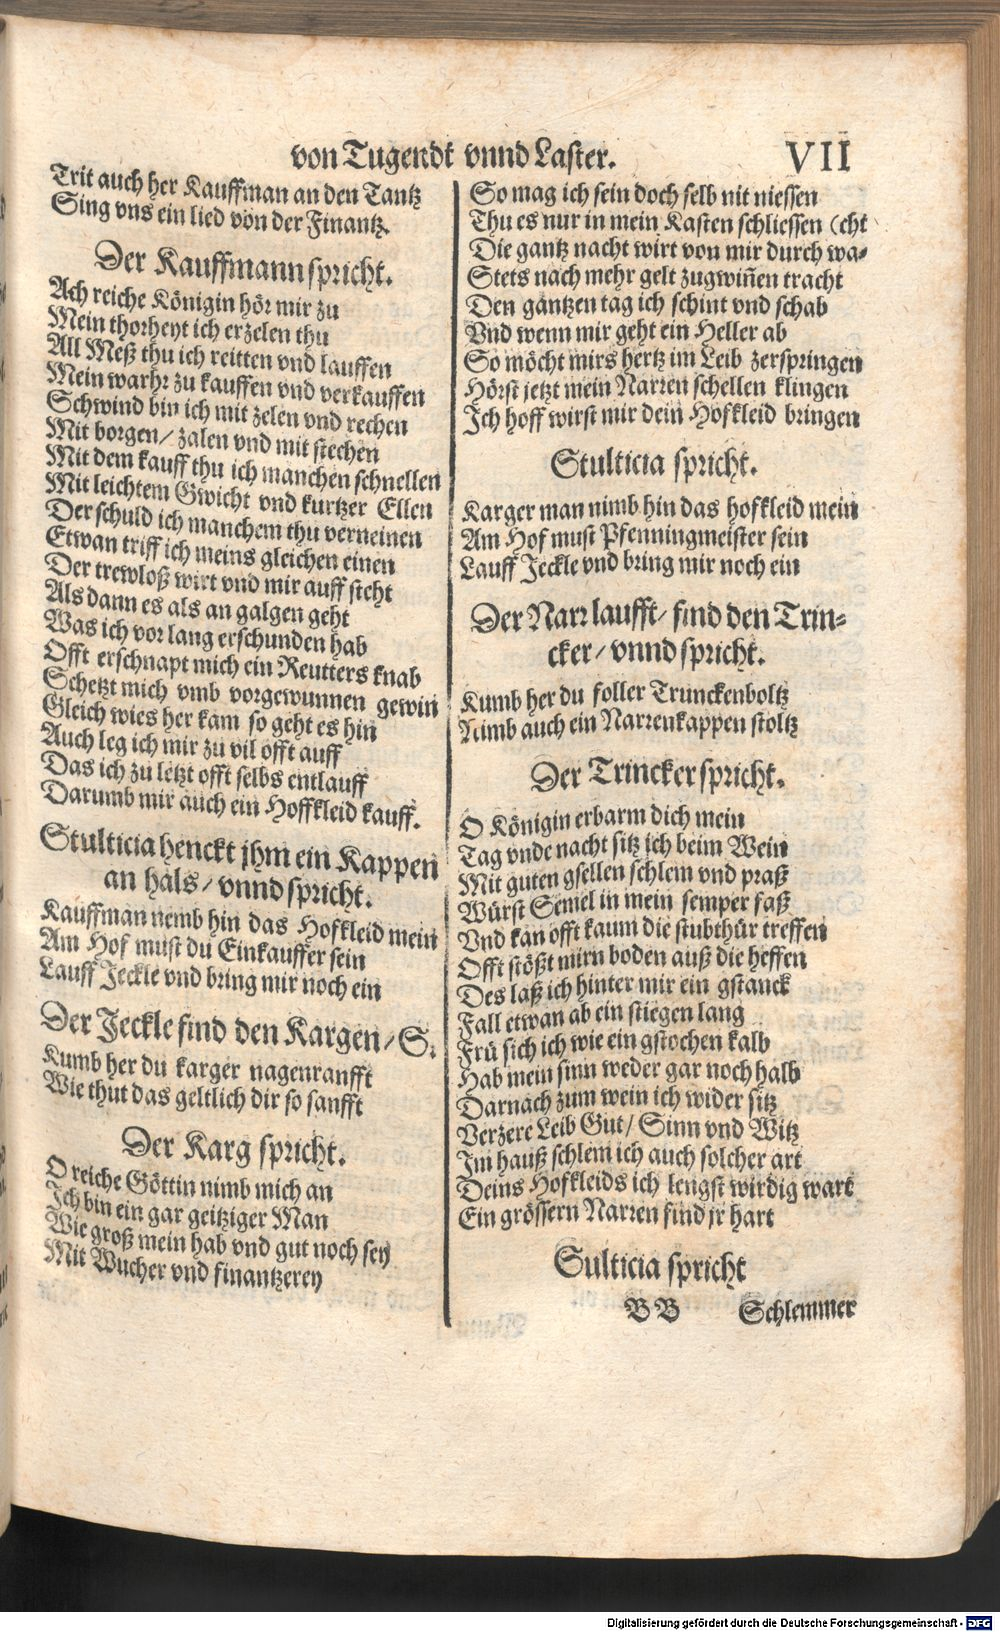 von Tugendt vnnd Laster. VII
Trit auch her Kauffman an den Tantz
Sing vns ein lied von der Finantz.
Der Kauffmann spricht.
Ach reiche Königin hör mir zu
Mein thorheyt ich erzelen thu
All Meß thu ich reitten vnd lauffen
Mein warhr zu kauffen vnd verkauffen
Schwind bin ich mit zelen vnd rechen
Mit borgen/ zalen vnd mit stechen
Mit dem kauff thu ich manchen schnellen
Mit leichtem Gwicht vnd kurtzer Ellen
Der schuld ich manchem thu verneinen
Etwan triff ich meins gleichen einen
Der trewloß wirt vnd mir auff steht
Als dann es als an galgen geht
Was ich vor lang erschunden hab
Offt erschnapt mich ein Reutters knab
Schetzt mich vmb vorgewunnen gewin
Gleich wies her kam so geht es hin
Auch leg ich mir zu vil offt auff
Das ich zu letzt offt selbs entlauff
Darumb mir auch ein Hoffkleid kauff.
Stulticia henckt jhm ein Kappen
an hals/ vnnd spricht.
Kauffman nemb hin das Hofkleid mein
Am Hof must du Einkauffer sein
Lauff Jeckle vnd bring mir noch ein
Der Jeckle find den Kargen/ S.
Kumb her du karger nagenranfft
Wie thut das geltlich dir so sanfft
Der Karg spricht.
O reiche Göttin nimb mich an
Ich bin ein gar geitziger Man
Wie groß mein hab vnd gut noch sey
Mit Wucher vnd finantzerey
So mag ich sein doch selb nit niessen
Thu es nur in mein Kasten schliessen (cht
Die gantz nacht wirt von mir durch wa-
Stets nach mehr gelt zugwiñen tracht
Den gantzen tag ich schint vnd schab
Vnd wenn mir geht ein Heller ab
So möcht mirs hertz im Leib zerspringen
Hörst jetzt mein Narren schellen klingen
Ich hoff wirst mir dein Hofkleid bringen
Stulticia spricht.
Karger man nimb hin das hofkleid mein
Am Hof must Pfenningmeister sein
Lauff Jeckle vnd bring mir noch ein
Der Narr laufft/ find den Trin-
cker/ vnnd spricht.
Kumb her du foller Trunckenboltz
Nimb auch ein Narrenkappen stoltz
Der Trincker spricht.
O Königin erbarm dich mein
Tag vnde nacht sitz ich beim Wein
Mit guten gsellen schlem vnd praß
Würst Semel in mein semper faß
Vnd kan offt kaum die stubthür treffen
Offt stößt mirn boden auß die heffen
Des laß ich hinter mir ein gstanck
Fall etwan ab ein stiegen lang
Frü sich ich wie ein gstochen kalb
Hab mein sinn weder gar noch halb
Darnach zum wein ich wider sitz
Verzere Leib Gut/ Sinn vnd Witz
Im hauß schlem ich auch solcher art
Deins Hofkleids ich lengst wirdig wart
Ein grössern Narren find jr hart
Sulticia spricht
BB Schlemmer
Digitalisierung gefördert durch die Deutsche Forschungsgemeinschaft - DFG